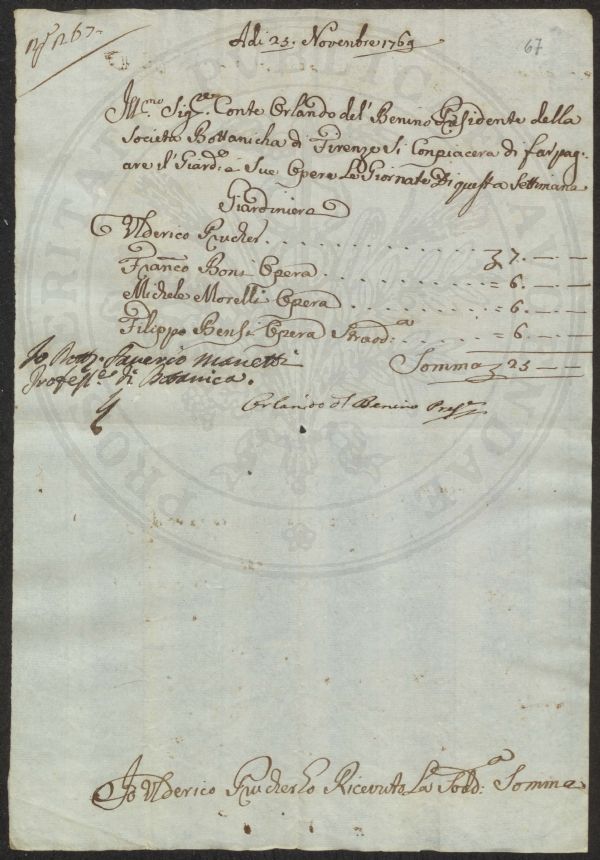 N° 267.
Adi 25. Novenbre 1769
67
Ill:mo Sig:re Conte Orlando del' Benino Presidente della
Societa Bottanicha di Firenze Si Conpiacera di far pag:
are il' Giard:e e Sue Opere Le Giornate Di questa Settimana
Giardiniere
Ulderico Prucher . . . . . . . . . . . 7. — —
Franco Boni Opera . . . . . . . . = 6. — —
Michele Morelli Opera . . . . . . . = 6. — —
Filippo Bensi Opera Straod:a . . . . = 6. — —
Somma 25 — —
Io Dott. Saverio Manetti
Profess:e di Botanica.
Orlando Del Benino Pres:e
Io Ulderico Prucher ho Ricevuto La Sodd:a Somma
PUBLICAE
PROSPERITATI